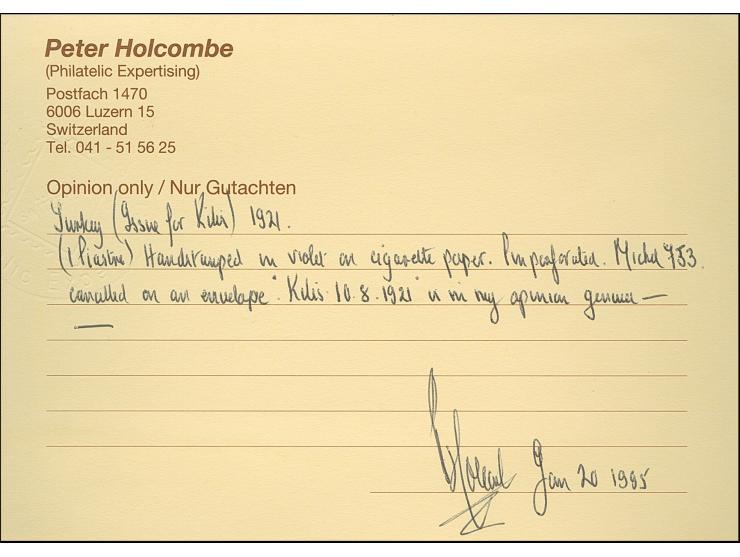 Peter Holcombe
(Philatelic Expertising)
Postfach 1470
6006 Luzern 15
Switzerland
Tel. 041 - 51 56 25
Opinion only / Nur Gutachten
Turkey (Issue for Kilis) 1921.
(1 Piastre) Handstamped in violet on cigarette paper. Pin perforated. Michel 753.
cancelled on an envelope "Kilis 10.8.1921" is in my opinion genuine —
Holcombe Jan 20 1995